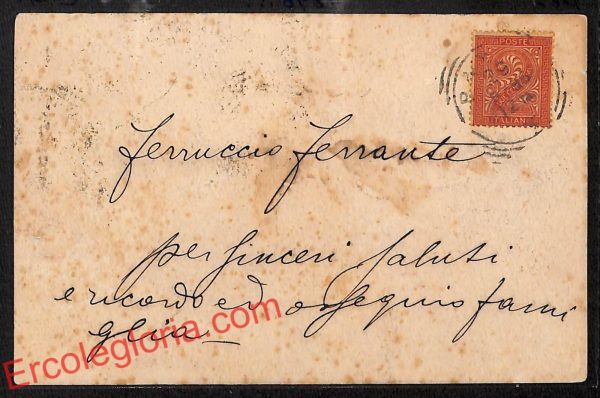 POSTE
ITALIANE
Ferruccio Ferrante
per sinceri saluti
e ricordo ed ossequio fami
glia
Ercolegloria.com